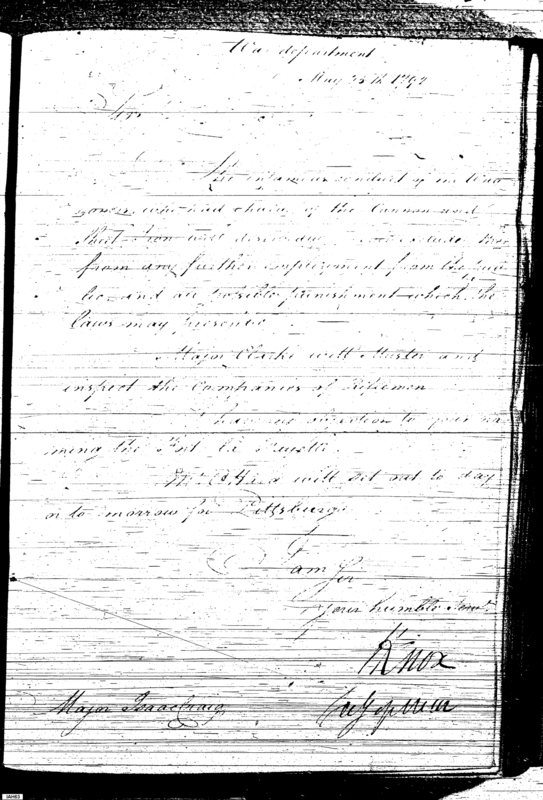 War department
May 25th 1792
Sir
The infamous conduct of the Wag
goners who had charge of the Cannon and
well deserved
from any further employment from the pub
lic and all possible punishment which the
laws may prescribe
Major Clarke will Muster and
inspect the Companies of Riflemen
I have no objection to your na
ming the Fort La Fayette.
Mr. O'Hara will set out to day
or to morrow for Pittsburg
I am Sir
Your humble Servt.
H Knox
Secy of War
Major Isaac Craig
IAH03